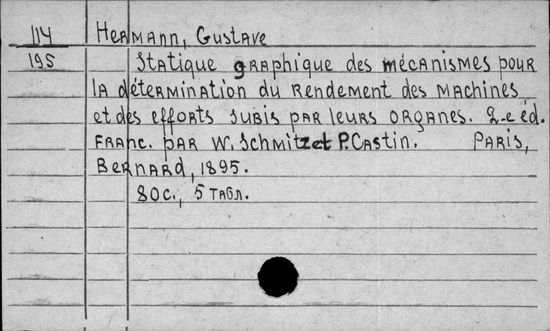 114 Hermann, Gustave
195 Statique graphique des mécanismes pour
la détermination du rendement des machines
et des efforts subis par leurs organes. 2-e éd.
franc. par W. Schmitz et P. Castin. Paris,
Bernard, 1895.
80с., 5 табл.